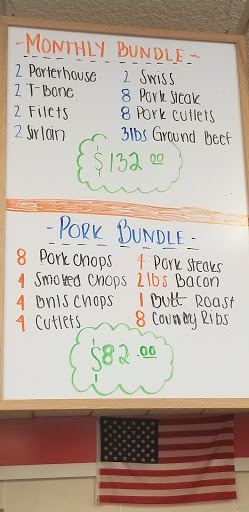 - MONTHLY BUNDLE -
2 Porterhouse
2 T-Bone
2 Filets
2 Sirloin
2 Swiss
8 Pork Steak
8 Pork Cutlets
3lbs Ground Beef
$132.00
- PORK BUNDLE -
8 Pork Chops
4 Smoked Chops
4 Bnls Chops
4 Cutlets
4 Pork Steaks
2lbs Bacon
1 Butt Roast
8 Country Ribs
$82.00